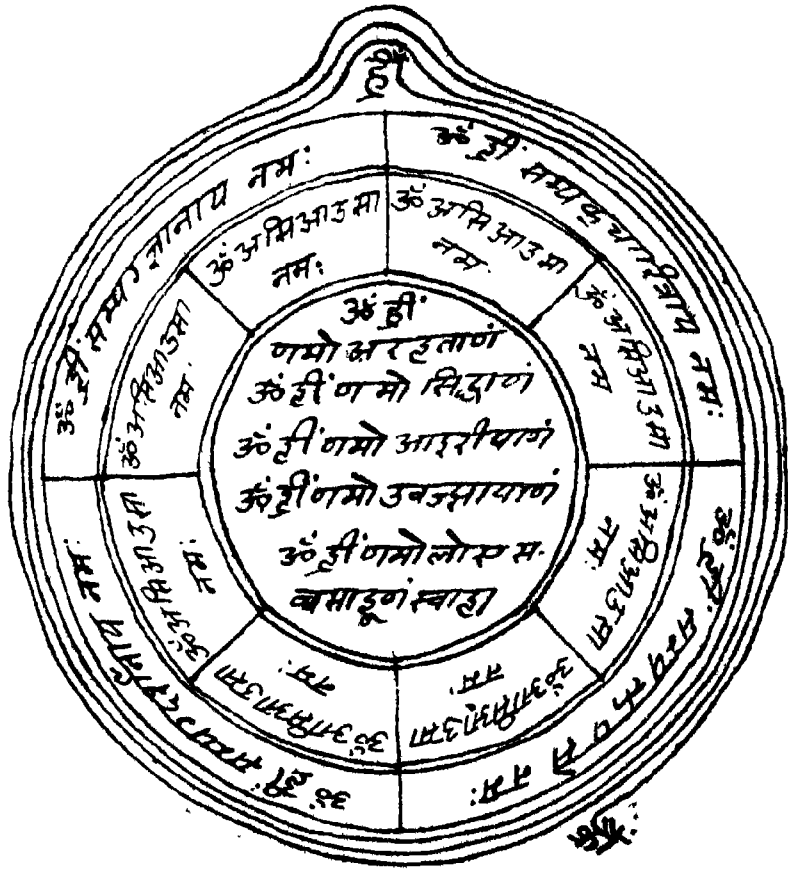 ॐ ह्रीं सम्यग्ज्ञानाय नमः
ॐ ह्रीं सम्यक् चारीत्राय नमः
ॐ ह्रीं सम्यक्तपसे नमः
ॐ ह्रीं सम्यग्दर्शनाय नमः
ॐ असिआउसा
नमः
ॐ असिआउसा
नम
ॐ असिआउसा
नम
ॐ असिआउसा
नमः
ॐ असिआउसा
नमः
ॐ असिआउसा
नमः
ॐ असिआउसा
नमः
ॐ असिआउसा
नमः
ॐ ह्रीं
णमो अरहताणं
ॐ ह्रीं णमो सिद्धाणं
ॐ ह्रीं णमो आइरीयाणं
ॐ ह्रीं णमो उवज्झायाणं
ॐ ह्रीं णमो लोए स-
व्वसाहूणं स्वाहा